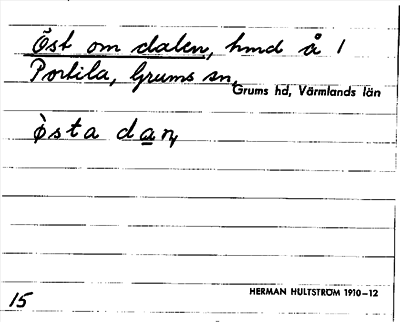 Öst om dalen, hmd å 1
Portila, Grums sn,
Grums hd, Värmlands län
östa dan,
HERMAN HULTSTRÖM 1910–12
15